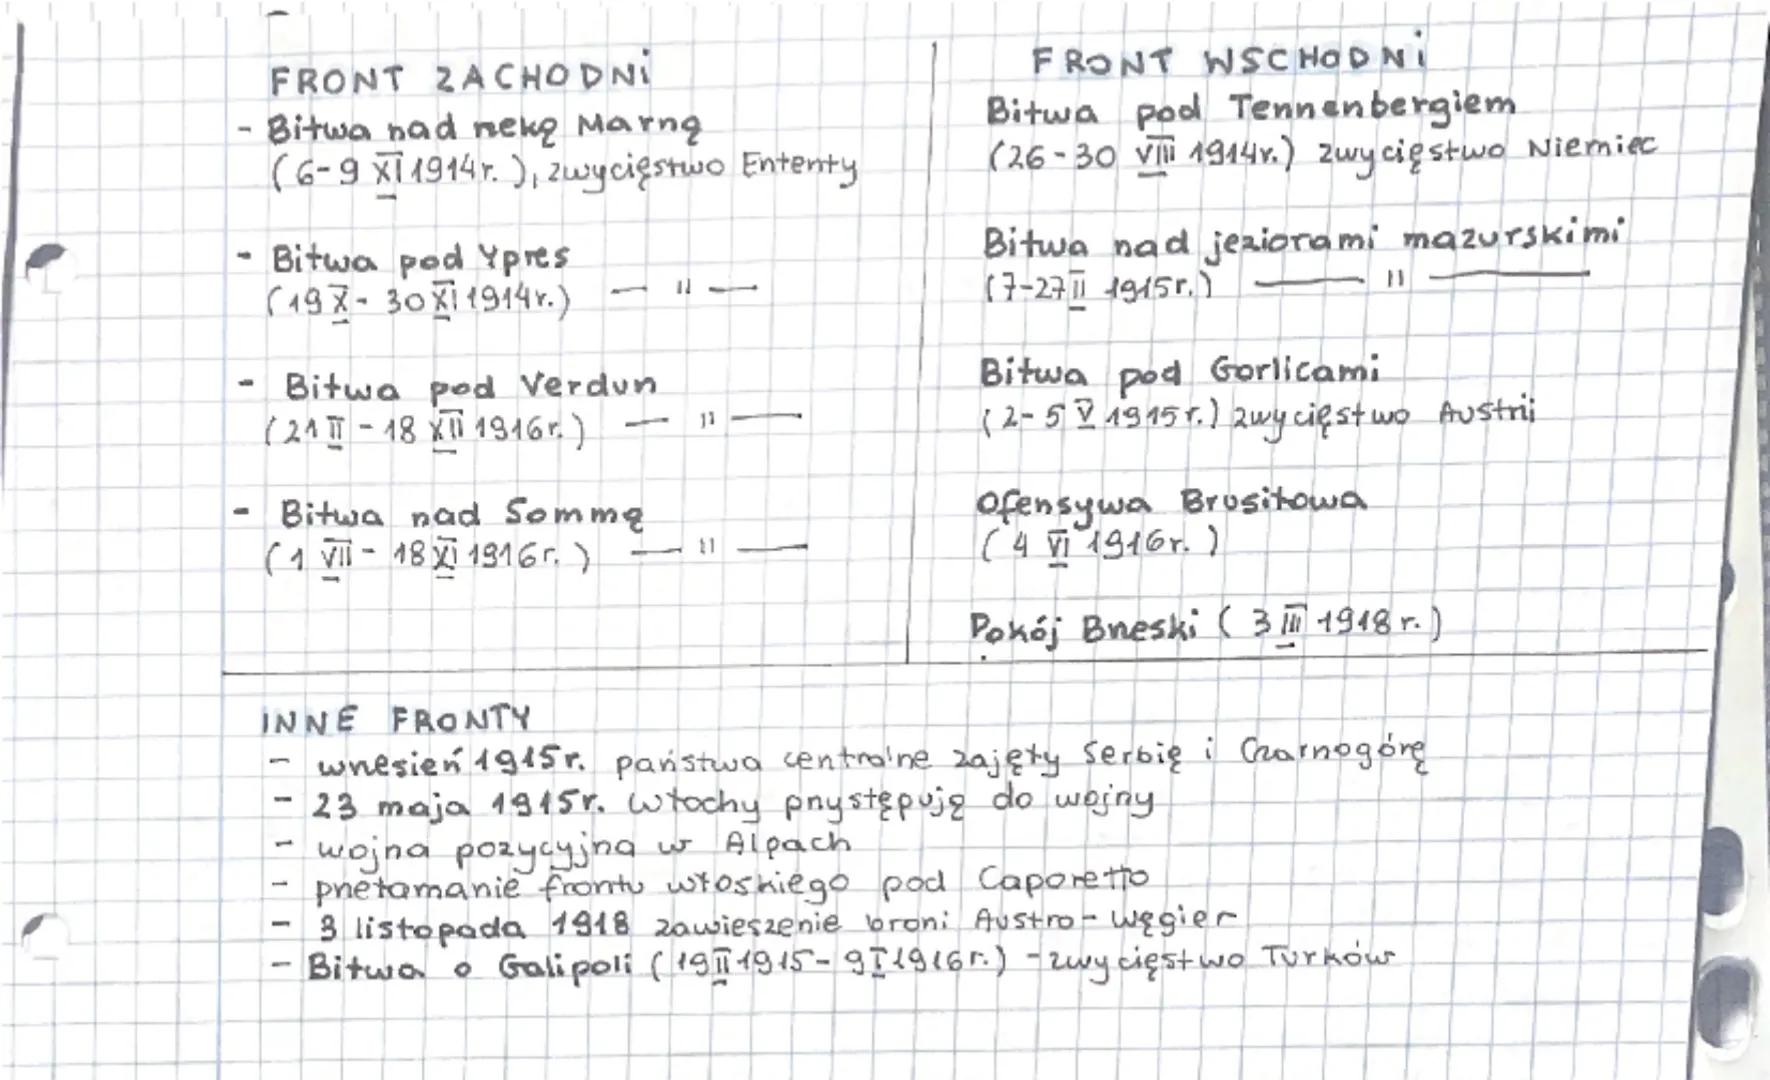 FRONT ZACHODNI
- Bitwa nad rzeką Marną
(6-9 XI 1914r.), zwycięstwo Ententy
- Bitwa pod Ypres
(19 X - 30 XI 1914r.) — 11 —
- Bitwa pod Verdun
(21 II - 18 XII 1916r.) — 11 —
- Bitwa nad Sommą
(1 VII - 18 XI 1916r.) — 11 —
FRONT WSCHODNI
Bitwa pod Tennenbergiem
(26-30 VIII 1914r.) zwycięstwo Niemiec
Bitwa nad jeziorami mazurskimi
(7-27 II 1915r.) — 11 —
Bitwa pod Gorlicami
(2-5 V 1915r.) zwycięstwo Austrii
Ofensywa Brusiłowa
(4 VI 1916r.)
Pokój Brzeski (3 III 1918r.)
INNE FRONTY
- wrzesień 1915r. państwa centralne zajęły Serbię i Czarnogórę
- 23 maja 1915r. Włochy przystępują do wojny
- wojna pozycyjna w Alpach
- przełamanie frontu włoskiego pod Caporetto
- 3 listopada 1918 zawieszenie broni Austro-Węgier
- Bitwa o Galipoli (19 II 1915 - 9 I 1916r.) - zwycięstwo Turków